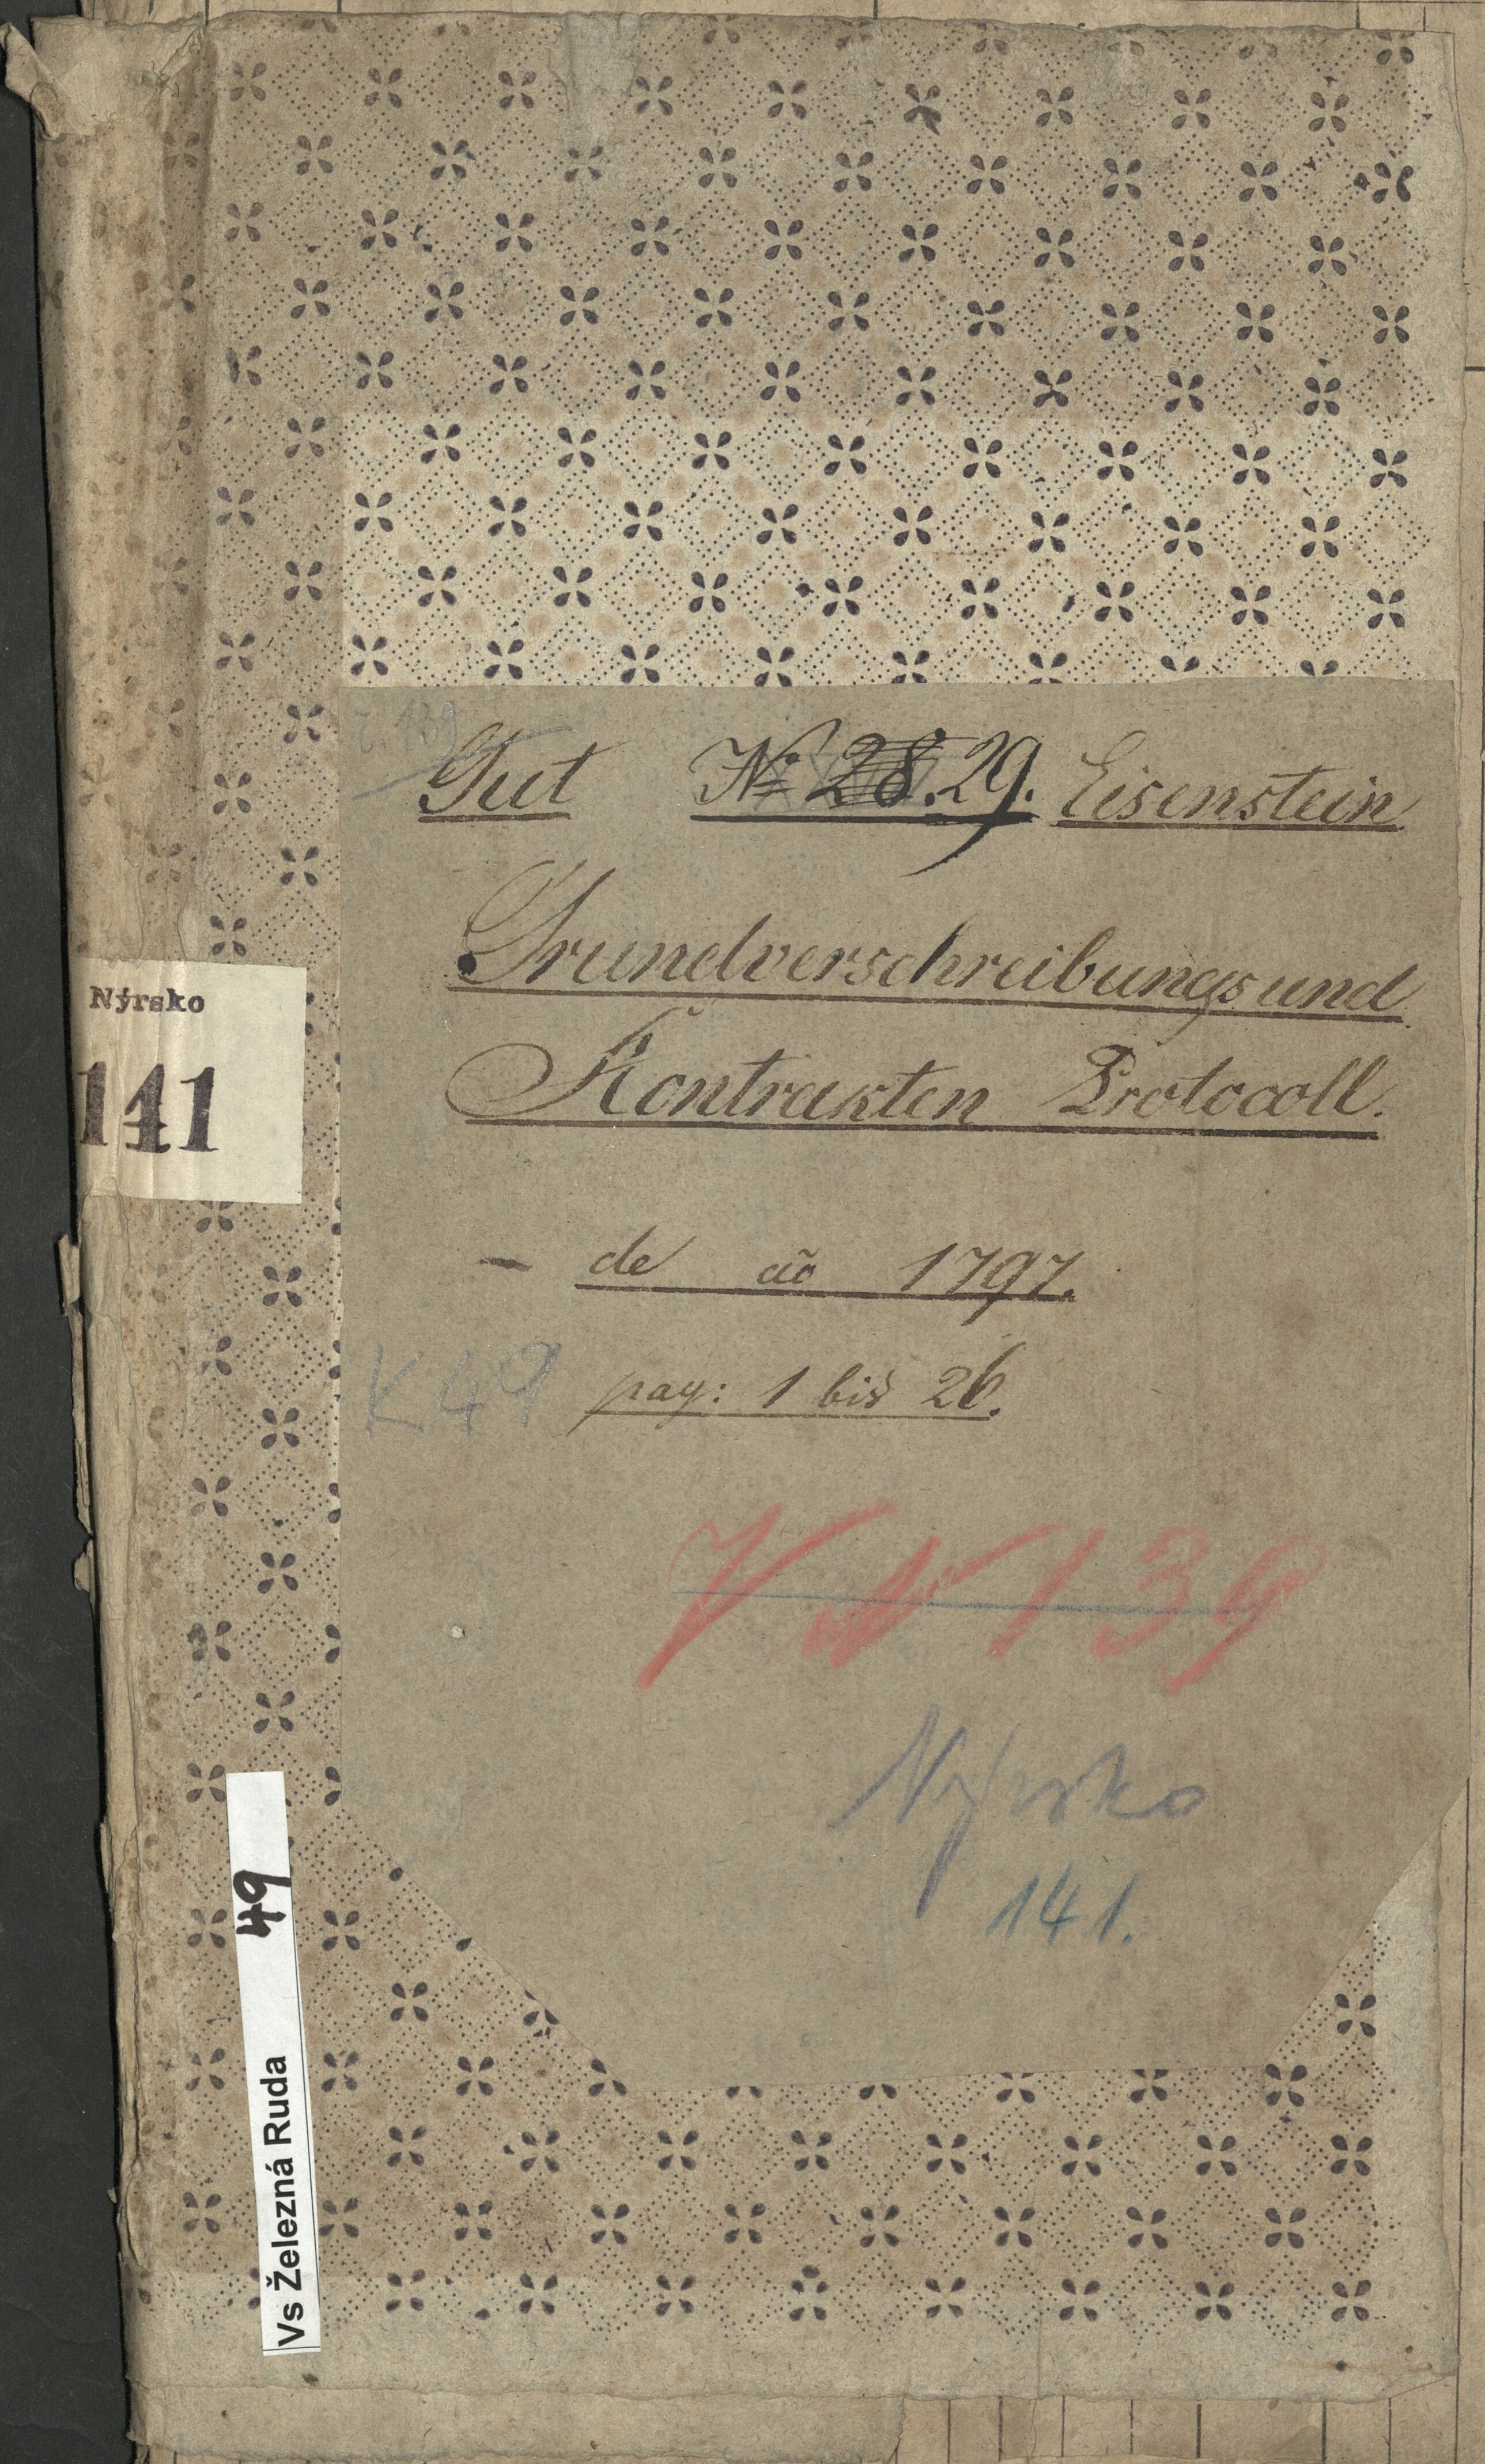 č. 139
Gut № 28. 29. Eisenstein
Grundverschreibungs und
Kontrakten Protocoll.
- de aõ 1797.
K 49 pag: 1 bis 26.
V № 139
Nýrsko
141.
Nýrsko
141
Vs Železná Ruda 49